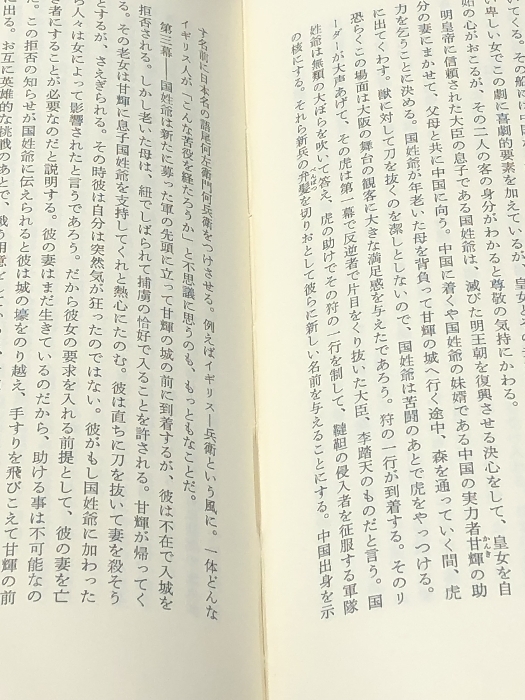 いてくる。その船に
い卑しい女でこの劇に喜劇的要素を加えているが、皇女と
始の心がおこるが、その二人の客の身分がわかると尊敬の気持にかわる。
明皇帝に信頼された大臣の息子である国姓爺は、滅びた明王朝を復興させる決心をして、皇女を自
分の妻にまかせて、父母と共に中国に向う。中国に着くや国姓爺の妹婿である中国の実力者甘輝の助
かんき
力を乞うことに決める。国姓爺が年老いた母を背負って甘輝の城へ行く途中、森を通っていく間、虎
にでくわす。獣に対して刀を抜くのを潔しとしないので、国姓爺は苦闘のあとで虎をやっつける。
恐らくこの場面は大阪の舞台の観客に大きな満足感を与えたであろう。狩の一行が到着する。そのリ
ーダーが大声あげて、その虎は第一幕で反逆者で片目をくり抜いた大臣、李踏天のものだと言う。国
姓爺は無類の大ぼらを吹いて答え、虎の助けでその狩の一行を制して、韃靼の侵入者を征服する軍隊
の核にする。それら新兵の弁髪を切りおとして彼らに新しい名前を与えることにする。中国出身を示
べんぱつ
す名前に日本名の語尾何左衛門何兵衛をつけさせる。例えばイギリス—兵衛という風に。一体どんな
イギリス人が「こんな苦役を経たろうか」と不思議に思うのも、もっともなことだ。
第三幕——国姓爺は新たに募った軍の先頭に立って甘輝の城の前に到着するが、彼は不在で入城を
拒否される。しかし老いた母は、紐でしばられて捕虜の恰好で入ることを許される。甘輝が帰ってく
る。その老女は甘輝に息子国姓爺を支持してくれと熱心にたのむ。彼は直ちに刀を抜いて妻を殺そう
とするが、さえぎられる。その時彼は自分は突然気が狂ったのではない。彼がもし国姓爺に加わった
ら人々は女によって影響されたと言うであろう。だから彼女の要求を入れる前提として、彼の妻を亡
者にすることが必要なのだと説明する。彼の妻はまだ生きているのだから、助ける事は不可能なの
だ。この拒否の知らせが国姓爺に伝えられると彼は城の壕をのり越え、手すりを飛びこえて甘輝の前
に出る。お互に英雄的な挑戦のあとで、戦う用意